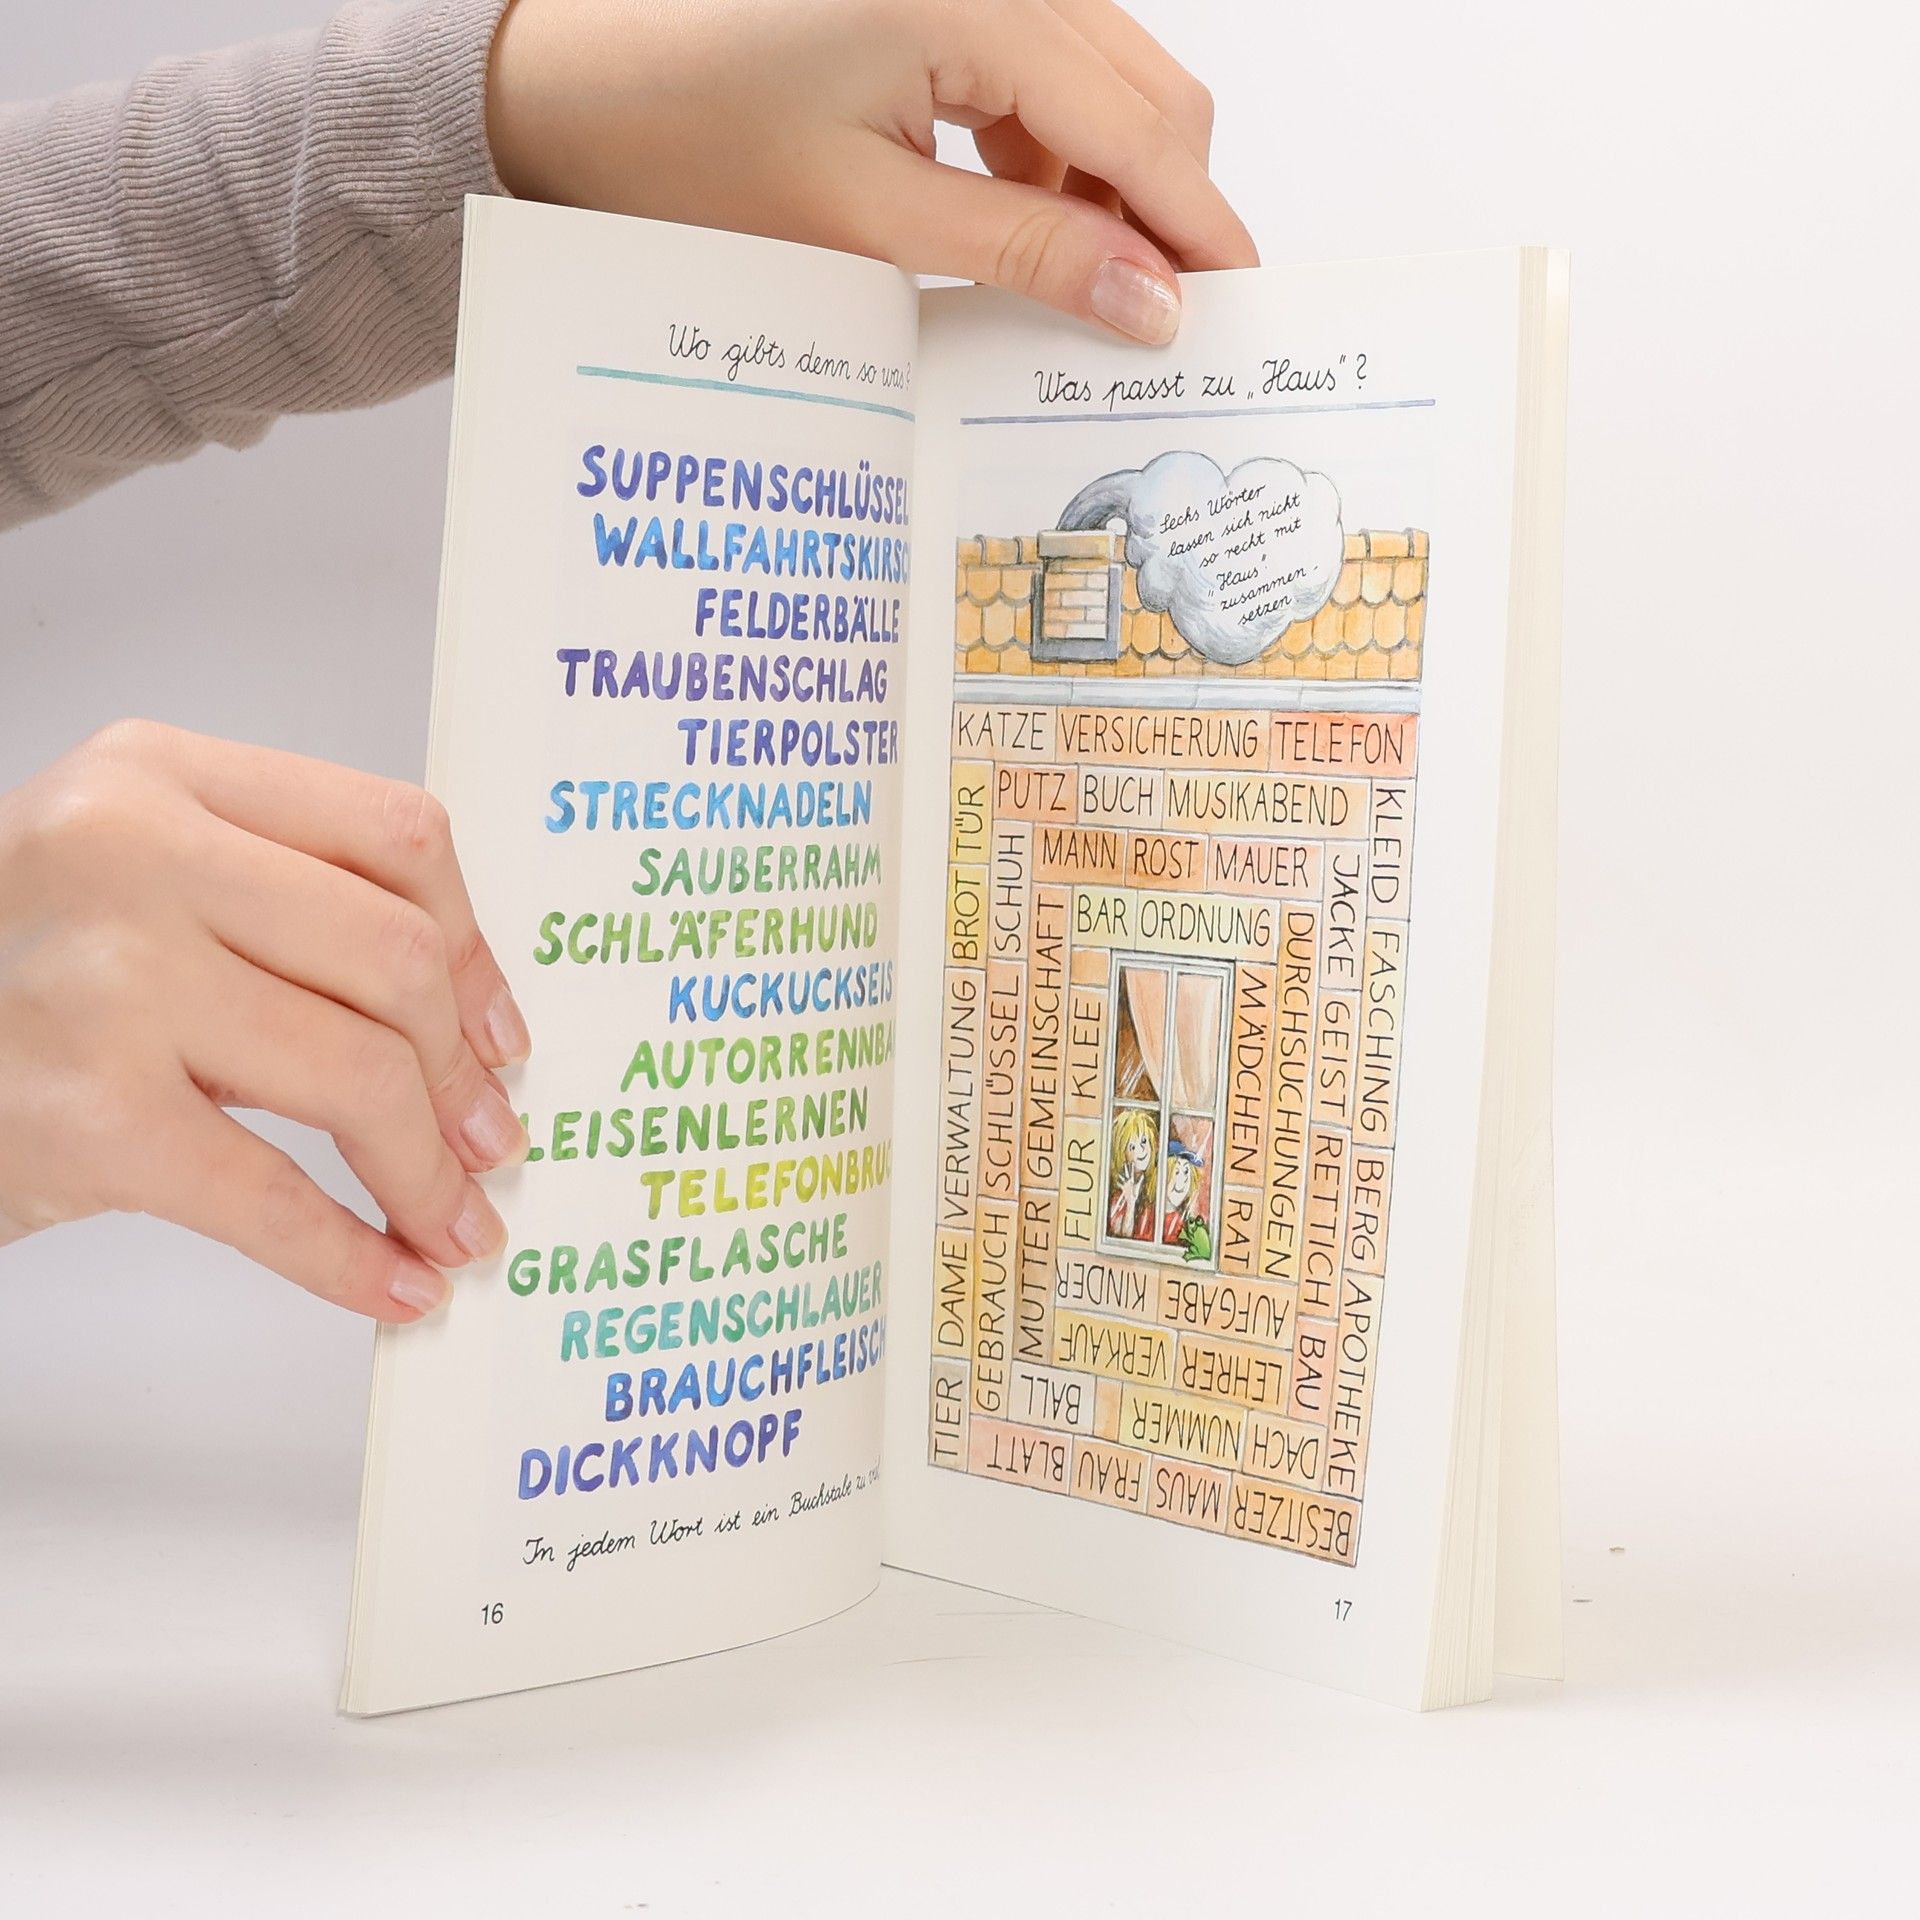 Wo gibts denn so was?
SUPPENSCHLÜSSEL
WALLFAHRTSKIRSC
FELDERBÄLLE
TRAUBENSCHLAG
TIERPOLSTER
STRECKNADELN
SAUBERRAHM
SCHLÄFERHUND
KUCKUCKSEIS
AUTORRENNBA
LEISENLERNEN
TELEFONBRUC
GRASFLASCHE
REGENSCHLAUER
BRAUCHFLEISCH
DICKKNOPF
In jedem Wort ist ein Buchstabe zu
16
Was passt zu „Haus"?
Sechs Wörter
lassen sich nicht
so recht mit
„Haus"
zusammen-
setzen
KATZE VERSICHERUNG TELEFON
KLEID FASCHING BERG APOTHEKE
BESITZER MAUS FRAU BLATT
TIER DAME VERWALTUNG BROT TÜR
PUTZ BUCH MUSIKABEND
JACKE GEIST RETTICH BAU
DACH NUMMER BALL
GEBRAUCH SCHLÜSSEL SCHUH
MANN ROST MAUER
DURCHSUCHUNGEN
LEHRER VERKAUF
MUTTER GEMEINSCHAFT
BAR ORDNUNG
MÄDCHEN RAT
AUFGABE KINDER
FLUR KLEE
17